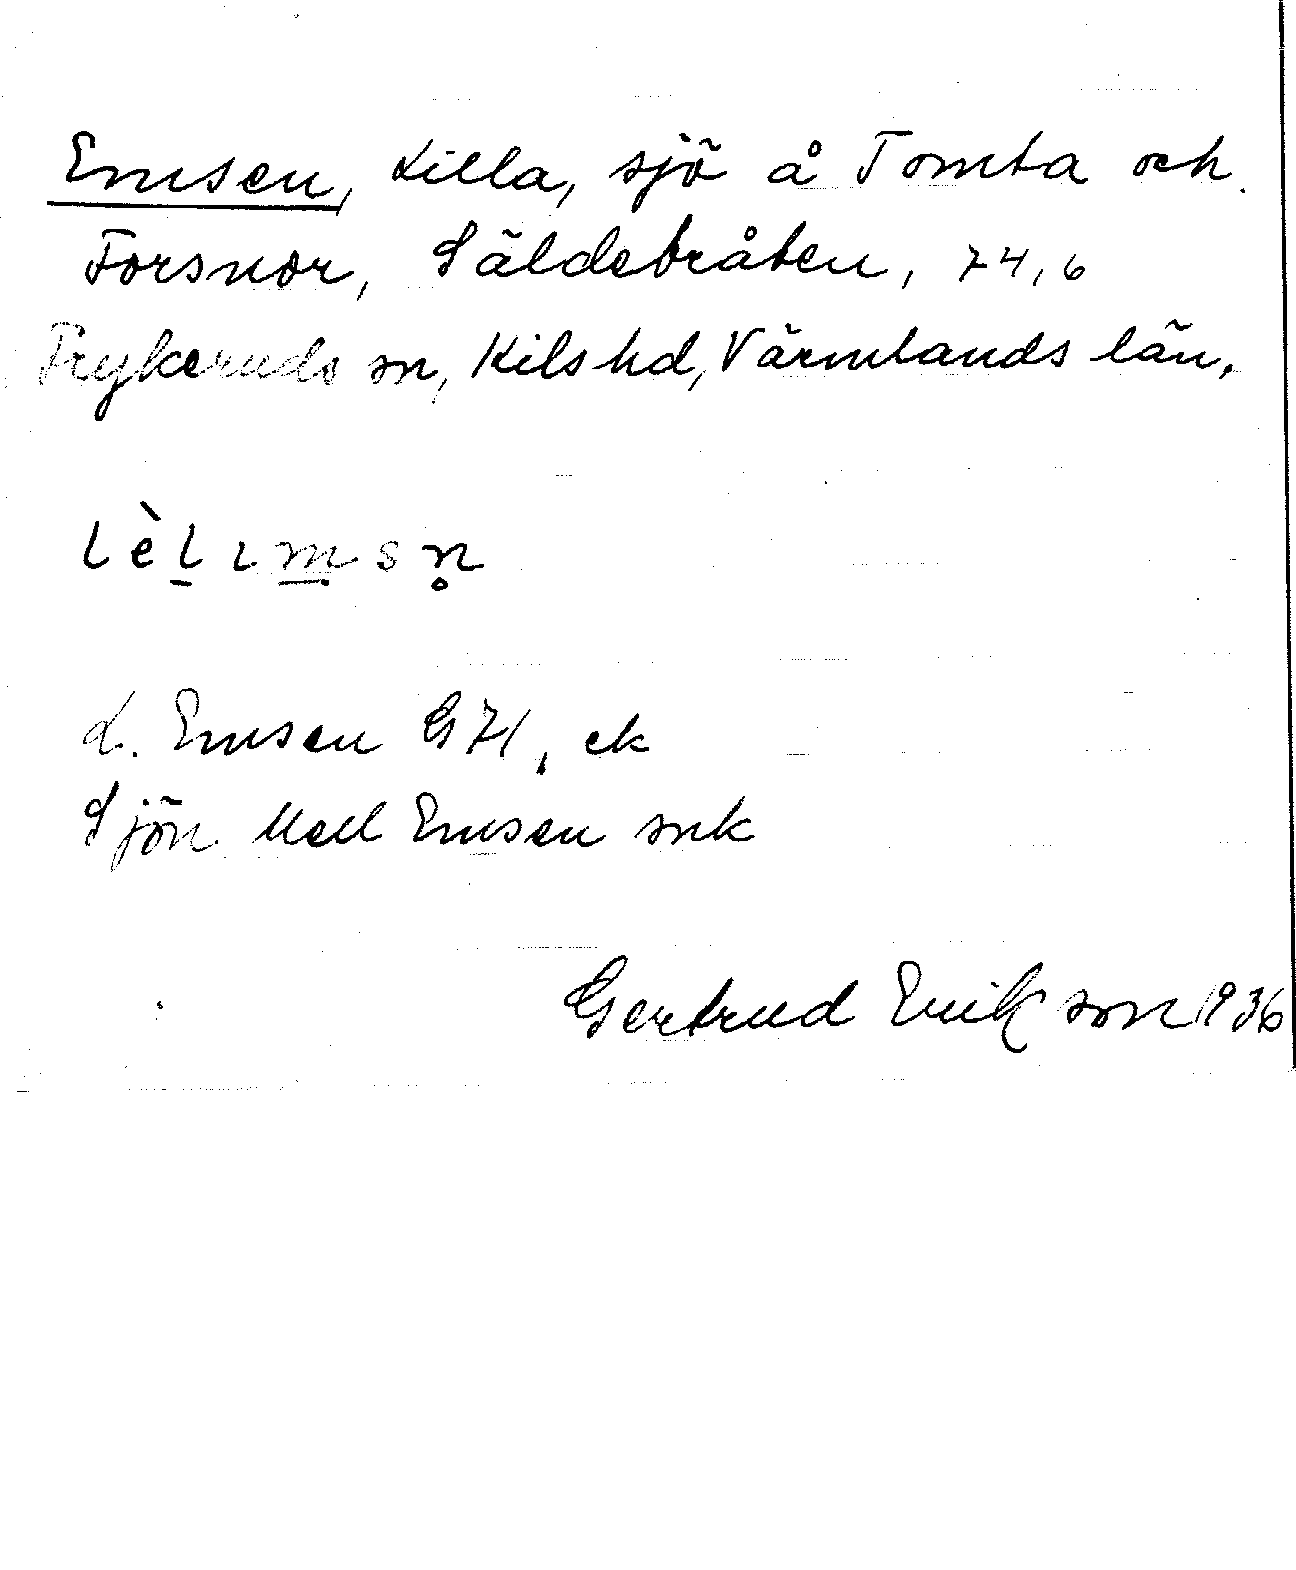 Emsen, Lilla, sjö å Tomta och
Forsnor, Säldebråten, 74,6
Frykeruds sn, Kils hd, Värmlands län.
l è l ı m s n̥
L. Emsen G71, ek
Sjön Mell Emsen snk
Gertrud Erikson 1936